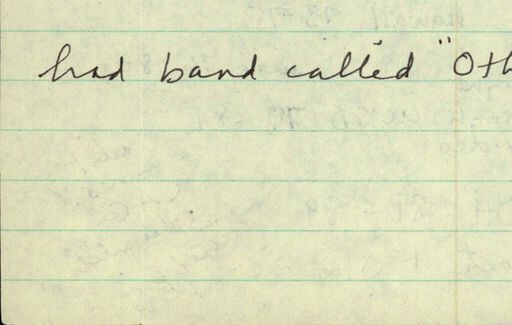 had band called "Oth